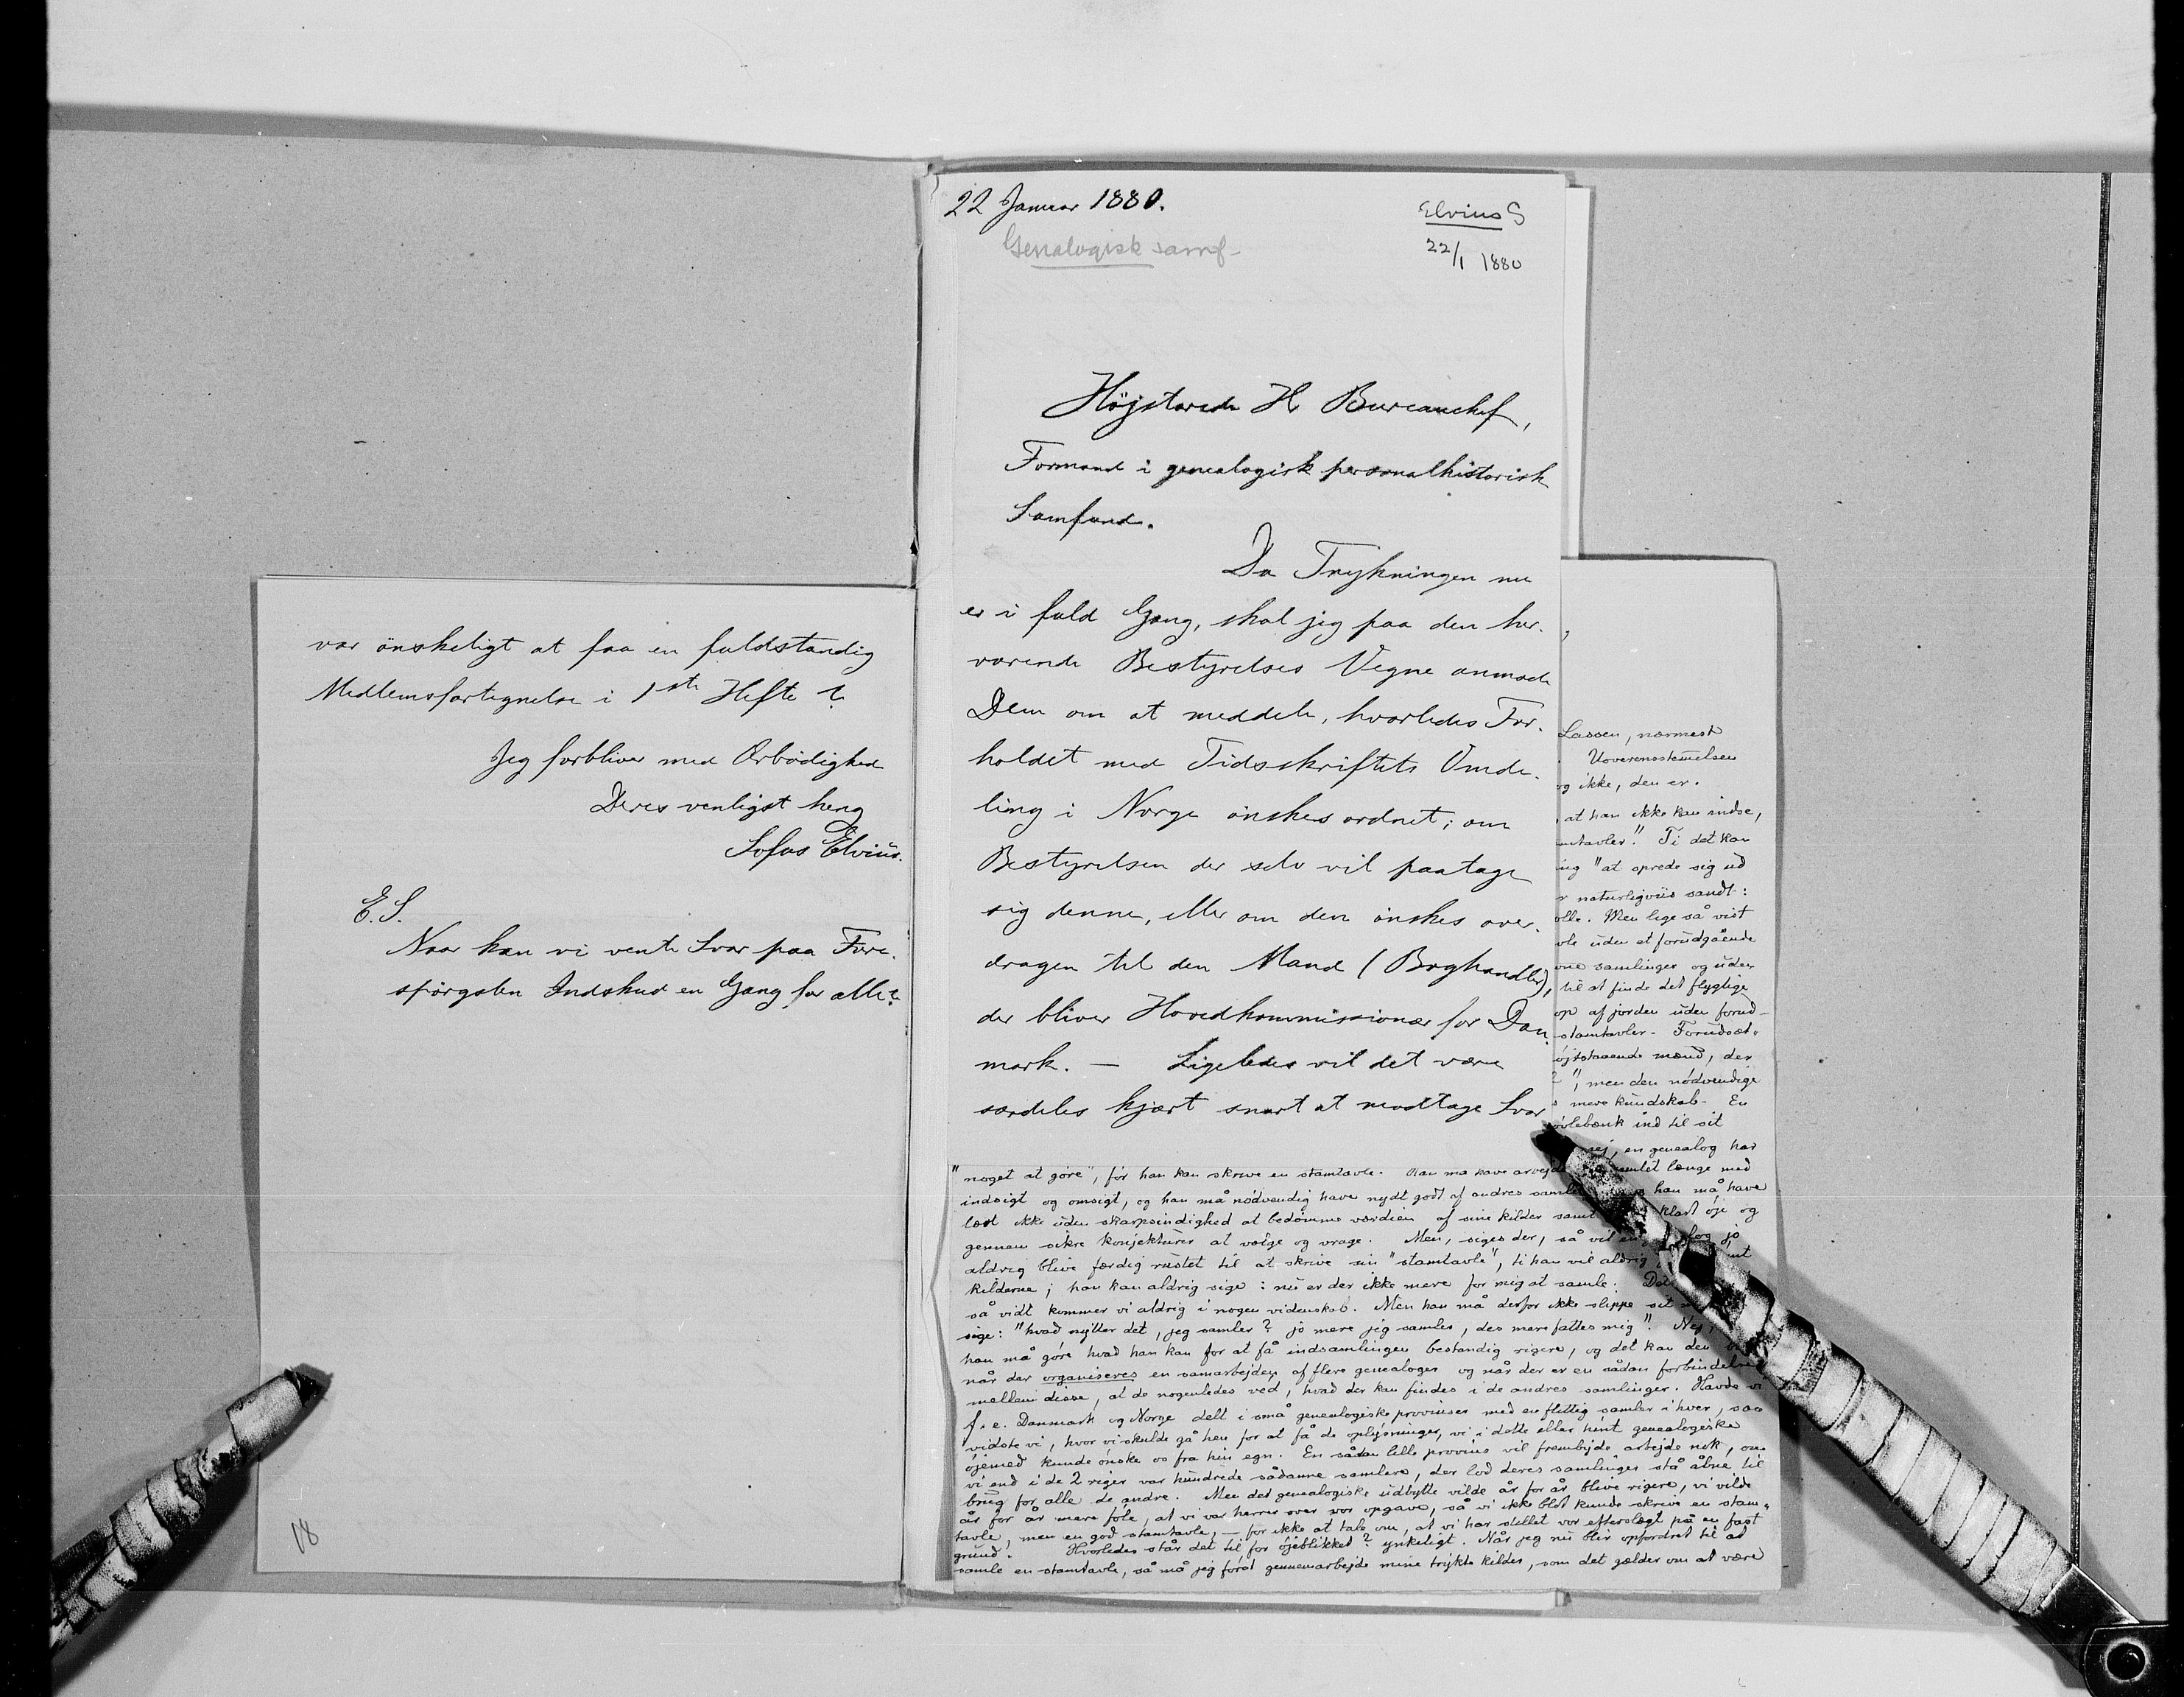 var önskeligt at faa en fuldstændig
Medlemsfortegnelse i 1ste Hefte?
Jeg forbliver med Ærbødighed
Deres venligst heng
Sofus Elvius.
E.S.
Naar kan vi vente Svar paa Fore-
spørgslen Indskud en Gang for alle?
18
22 Januar 1880.
Elvius S
22/1 1880
Genalogisk samf-
Højstærede Hr Bureauchef,
Formand i genealogisk personalhistorisk
Samfund.
Da Trykningen nu
er i fuld Gang, skal jeg paa den her-
værende Bestyrelses Vegne anmode
Dem om at meddele, hvorledes For-
holdet med Tidsskriftets Omde-
ling i Norge ønskes ordnet; om
Bestyrelsen der selv vil paatage
sig denne, eller om den ønskes over-
dragen til den Mand (Boghandler),
der bliver Hovedkommissionær for Dan-
mark. — Ligeledes vil det være
særdeles kjært snart at modtage Svar
Lassen, nærmest
Uoverensstemmelsen
og ikke, den er.
at han ikke kan indse,
mtavler." Ti det kan
ing "at oprede sig ud
r naturligviis sandt:
olle. Men lige så vist
vle uden et forudgående
vne samlinger og uden
til at finde det flygtige
op af jorden uden forud-
stamtavler. Forudsæt-
øjstaaende mænd, der
", men den nødvendige
s mere kundskab. En
øvlebænk ind til sit
nej, en genealog har
"noget at gøre", før han kan skrive en stamtavle. Han må have arvejdet samlet længe med
indsigt og omsigt, og han må nødvendig have nydt godt af andres saml han må have
lært ikke uden skarpsindighed at bedømme værdien af sine kilder samt klart øje og
gennem sikre konjekturer at vælge og vrage. Men, siges der, så vil en jo
aldrig blive færdig rustet til at skrive sin "stamtavle", ti han vil aldrig
kilderne; han kan aldrig sige: nu er der ikke mere for mig at samle. Det
så vidt kommer vi aldrig i nogen videnskab. Men han må derfor ikke slippe sit
sige: "hvad nytter det, jeg samler? jo mere jeg samler, des mere fattes mig". Nej,
han må gøre hvad han kan for at få indsamlingen bestandig rigere, og det kan den
når der organiseres en samarbejden af flere genealoger og når der er en sådan forbindelse
mellem disse, at de nogenledes ved, hvad der kan findes i de andres samlinger. Havde vi
f. e. Danmark og Norge delt i små genealogiske provinser med en flittig samler i hver, saa
vidste vi, hvor vi skulde gå hen for at få de oplysninger, vi i dette eller hint genealogiske
øjemed kunde ønske os fra hin egn. En sådan lille provins vil frembyde arbejde nok, om
vi end i de 2 riger var hundrede sådanne samlere, der lod deres samlinger stå åbne til
brug for alle de andre. Men det genealogiske udbytte vilde år for år blive rigere, vi vilde
år for år mere føle, at vi var herrer over vor opgave, så vi ikke blot kunde skrive en stam-
tavle, men en god stamtavle, — for ikke at tale om, at vi har stillet vor efterslægt på en fast
grund. Hvorledes står det til for øjeblikket? ynkeligt. Når jeg nu blir opfordret til at
samle en stamtavle, så må jeg først gennemarbejde mine trykte kilder, som det gælder om at være